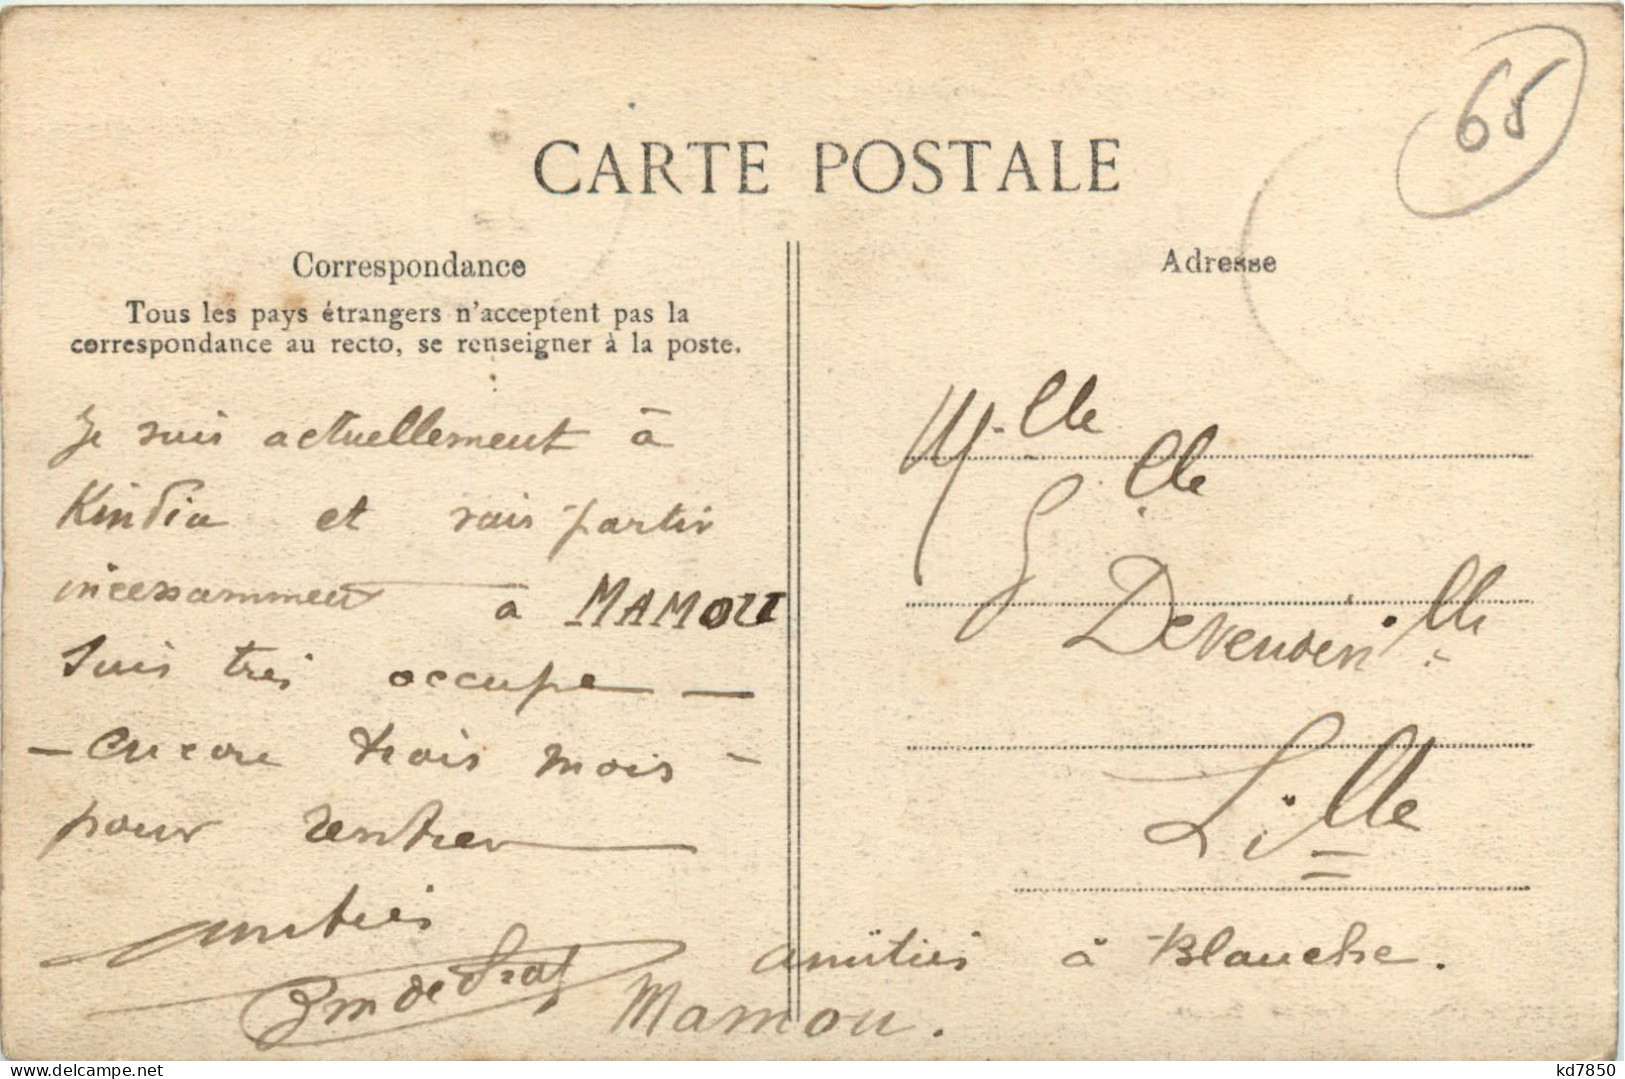 65
CARTE POSTALE
Correspondance
Tous les pays étrangers n'acceptent pas la
correspondance au recto, se renseigner à la poste.
Je suis actuellement à
Kindia et vais partir
incessamment à MAMOU
Suis très occupé —
— encore trois mois —
pour rentrer
amitiés
Adresse
M.elle
Lille
amitiés à Blanche.
Mamou.
kd7850